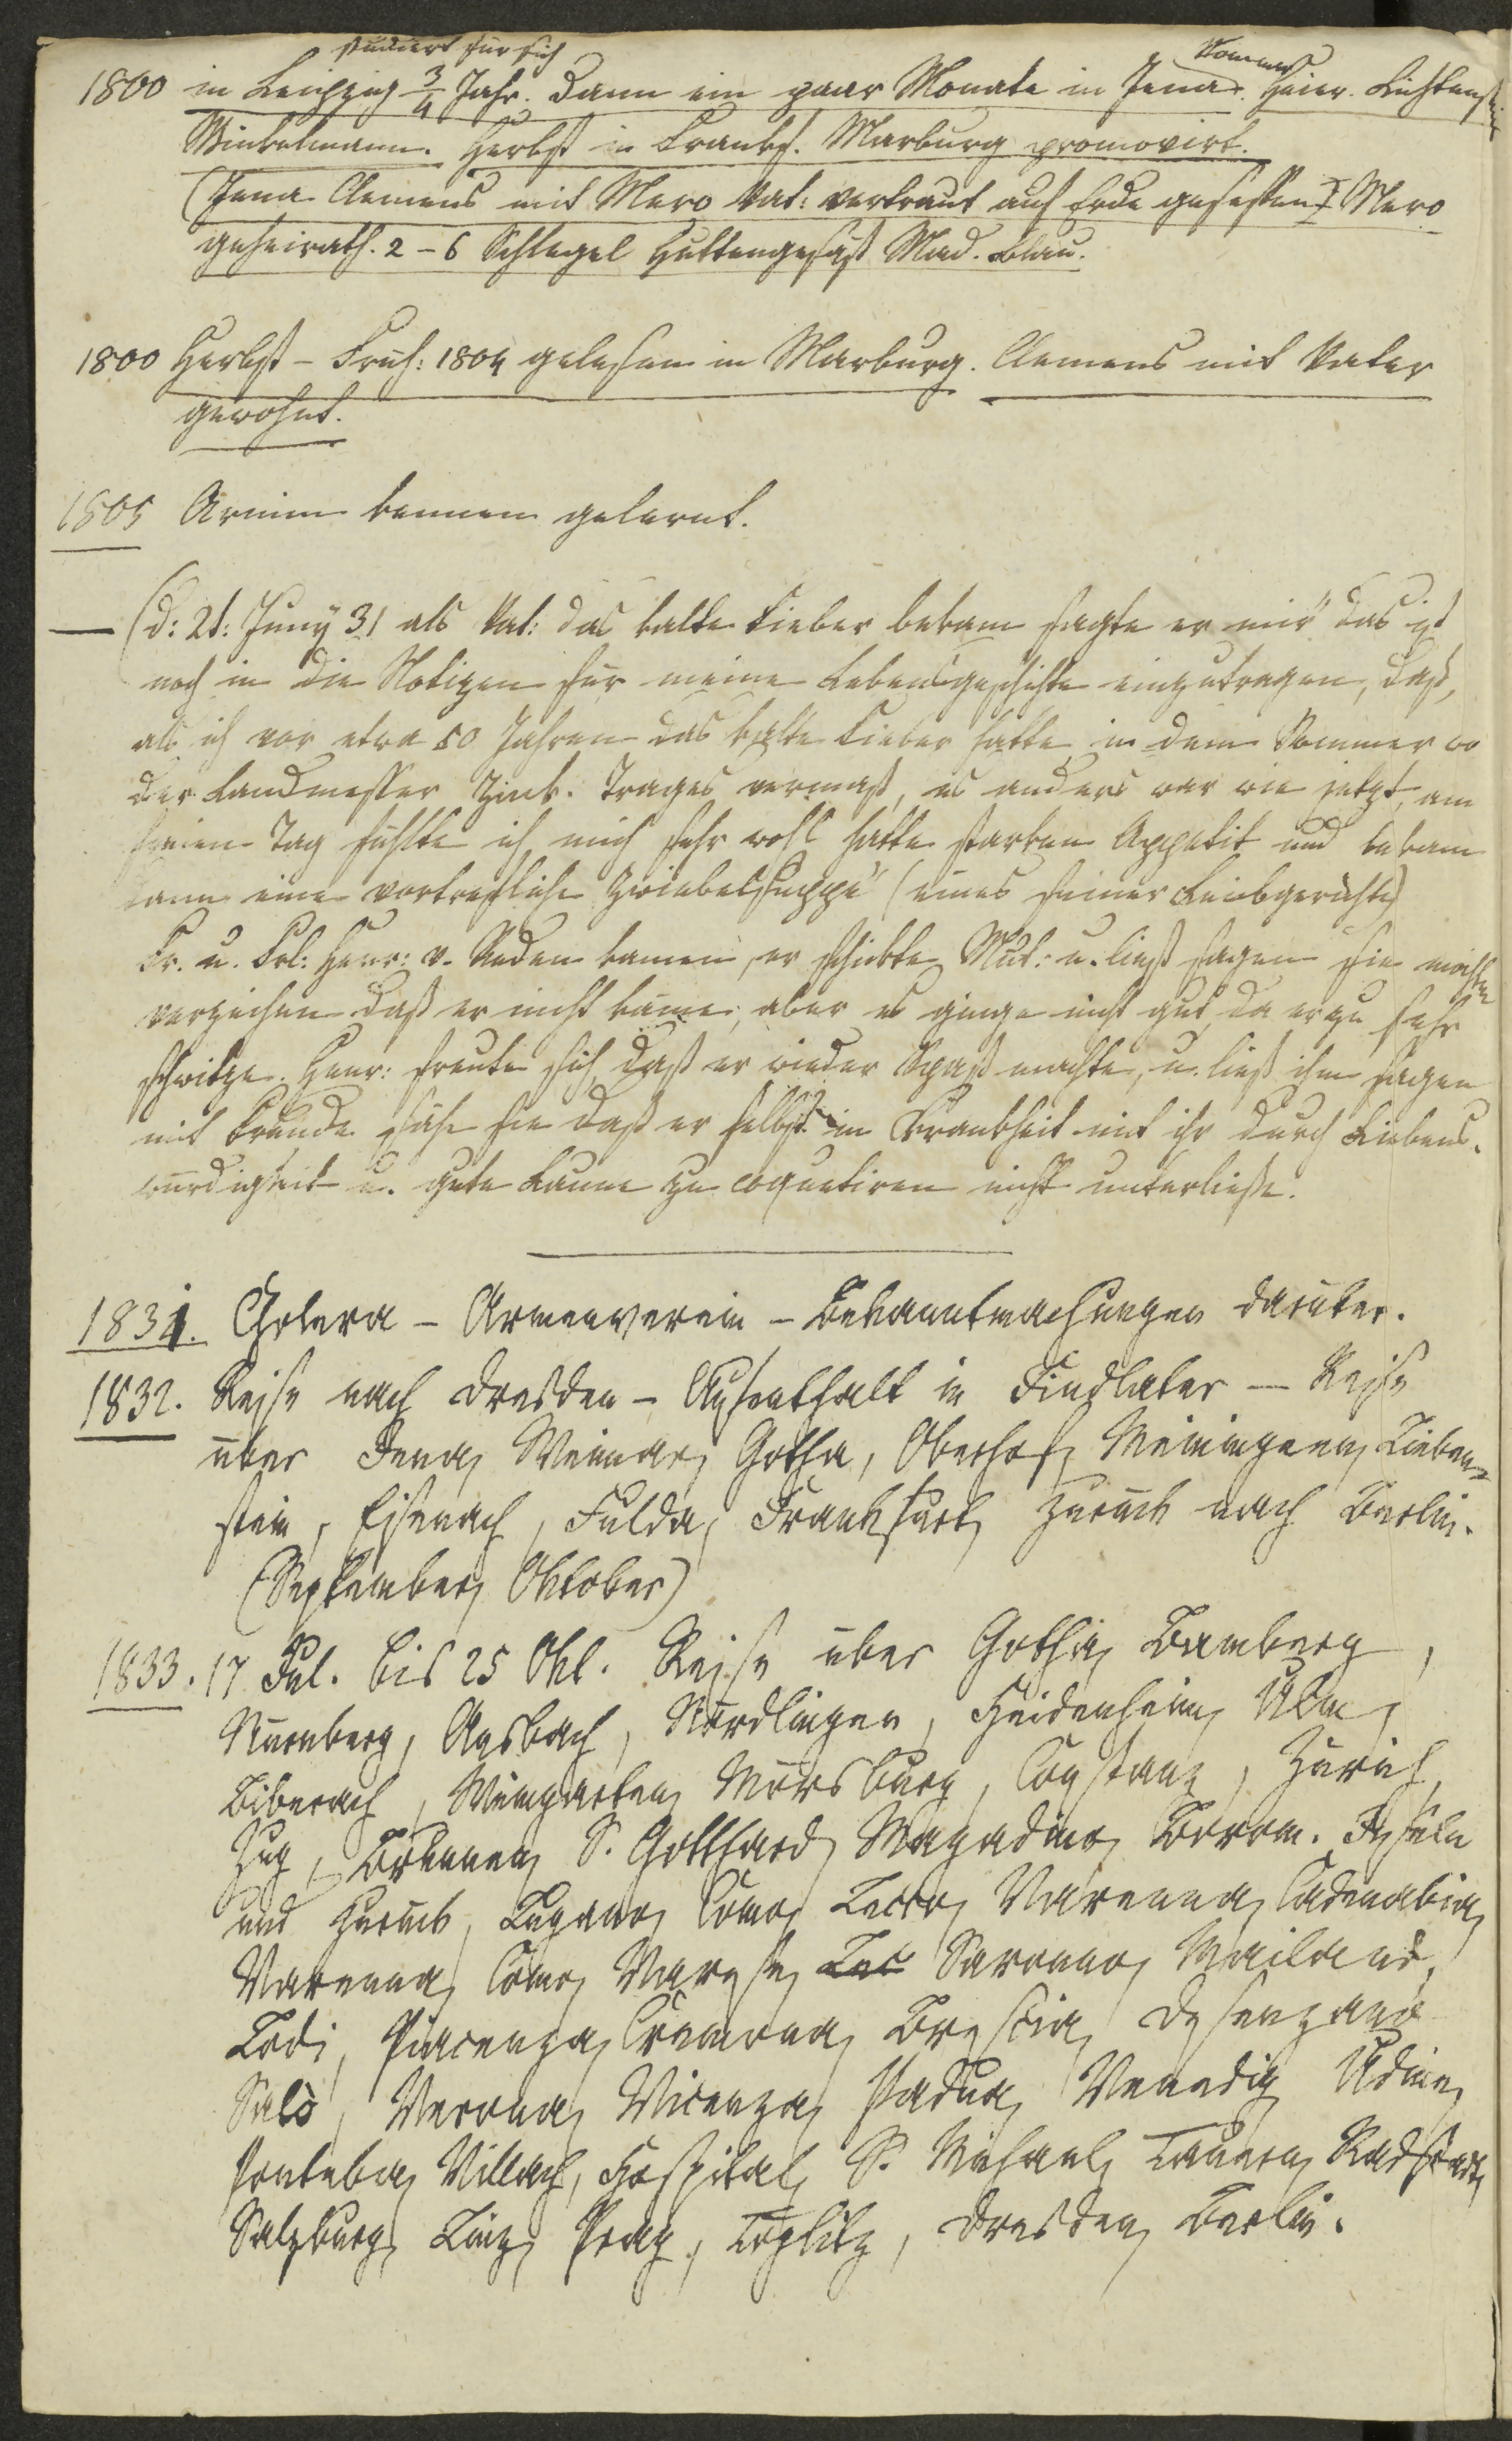 studiert für sich
Sommer
1800 in Leipzig 3/4 Jahr. Dann ein paar Monate in Jena. Heier. Lichtenstein
Winkelmann. Herbst in Frankf. Marburg promovirt.
(Jena Clemens mit Mero Vat: vertraut auf Erde gesessen) Mero
geheirath. 2 – 6 Schlegel Huttengesäß Mad. Blau.
1800 Herbst – Früh: 1804 gelesen in Marburg. Clemens mit Vater
gewohnt.
1805 Arnim kennen gelernt.
— (d: 2t: Juny 31 als Vat: das kalte Fieber bekam sagte er mir "das ist
noch in die Notizen für meine Lebensgeschichte einzutragen, daß,
als ich vor etwa 50 Jahren das kalte Fieber hatte in dem Sommer wo
der Landmesser Zink. Trages vermaß, es anders war wie jetzt, am
freien Tag fühlte ich mich sehr wohl hatte starken Appetit und bekam
dann eine vortreffliche Zwiebelsuppe" (eines seiner Leibgerichte)
Fr. u. Frl: Henr: v. Reden kamen, er schickte Mut: u. ließ sagen sie mochten
verzeihen daß er nicht käme, aber es ginge nicht gut, da er zu sehr
schwitze. Henr: freute sich daß er wieder Spaß machte, u. ließ ihm sagen
mit Freude sähe sie daß er selbst in Krankheit mit ihr durch Liebens-
würdigkeit u. gute Laune zu coquetiren nicht unterließe.
1831. Cholera – Armenverein – Bekanntmachungen darüber.
1832. Reise nach Dresden – Aufenthalt in Findlater — Reise
über Jena, Weimar, Gotha, Oberhof, Meiningen, Lieben-
stein, Eisenach, Fulda, Frankfurt, zurück nach Berlin.
(September, Oktober)
1833. 17 Jul. bis 25 Okt. Reise über Gotha, Bamberg,
Nürnberg, Ansbach, Nördlingen, Heidenheim, Ulm,
Biberach, Weingarten, Mörsburg, Constanz, Zürich,
Zug, Brunnen, S. Gotthard, Magadino, Borrom. Inseln
und zurück, Lugano, Como, Lecco, Varenna, Cadenabia,
Varenna, Como, Varese, Lec Saronno, Mailand,
Lodi, Piacenza, Cremona, Brescia, Desenzano
Salò, Verona, Vicenza, Padua, Venedig, Udine,
Ponteba, Villach, Hospital, S. Michael, Tauern, Radstadt,
Salzburg, Linz, Prag, Töplitz, Dresden, Berlin.